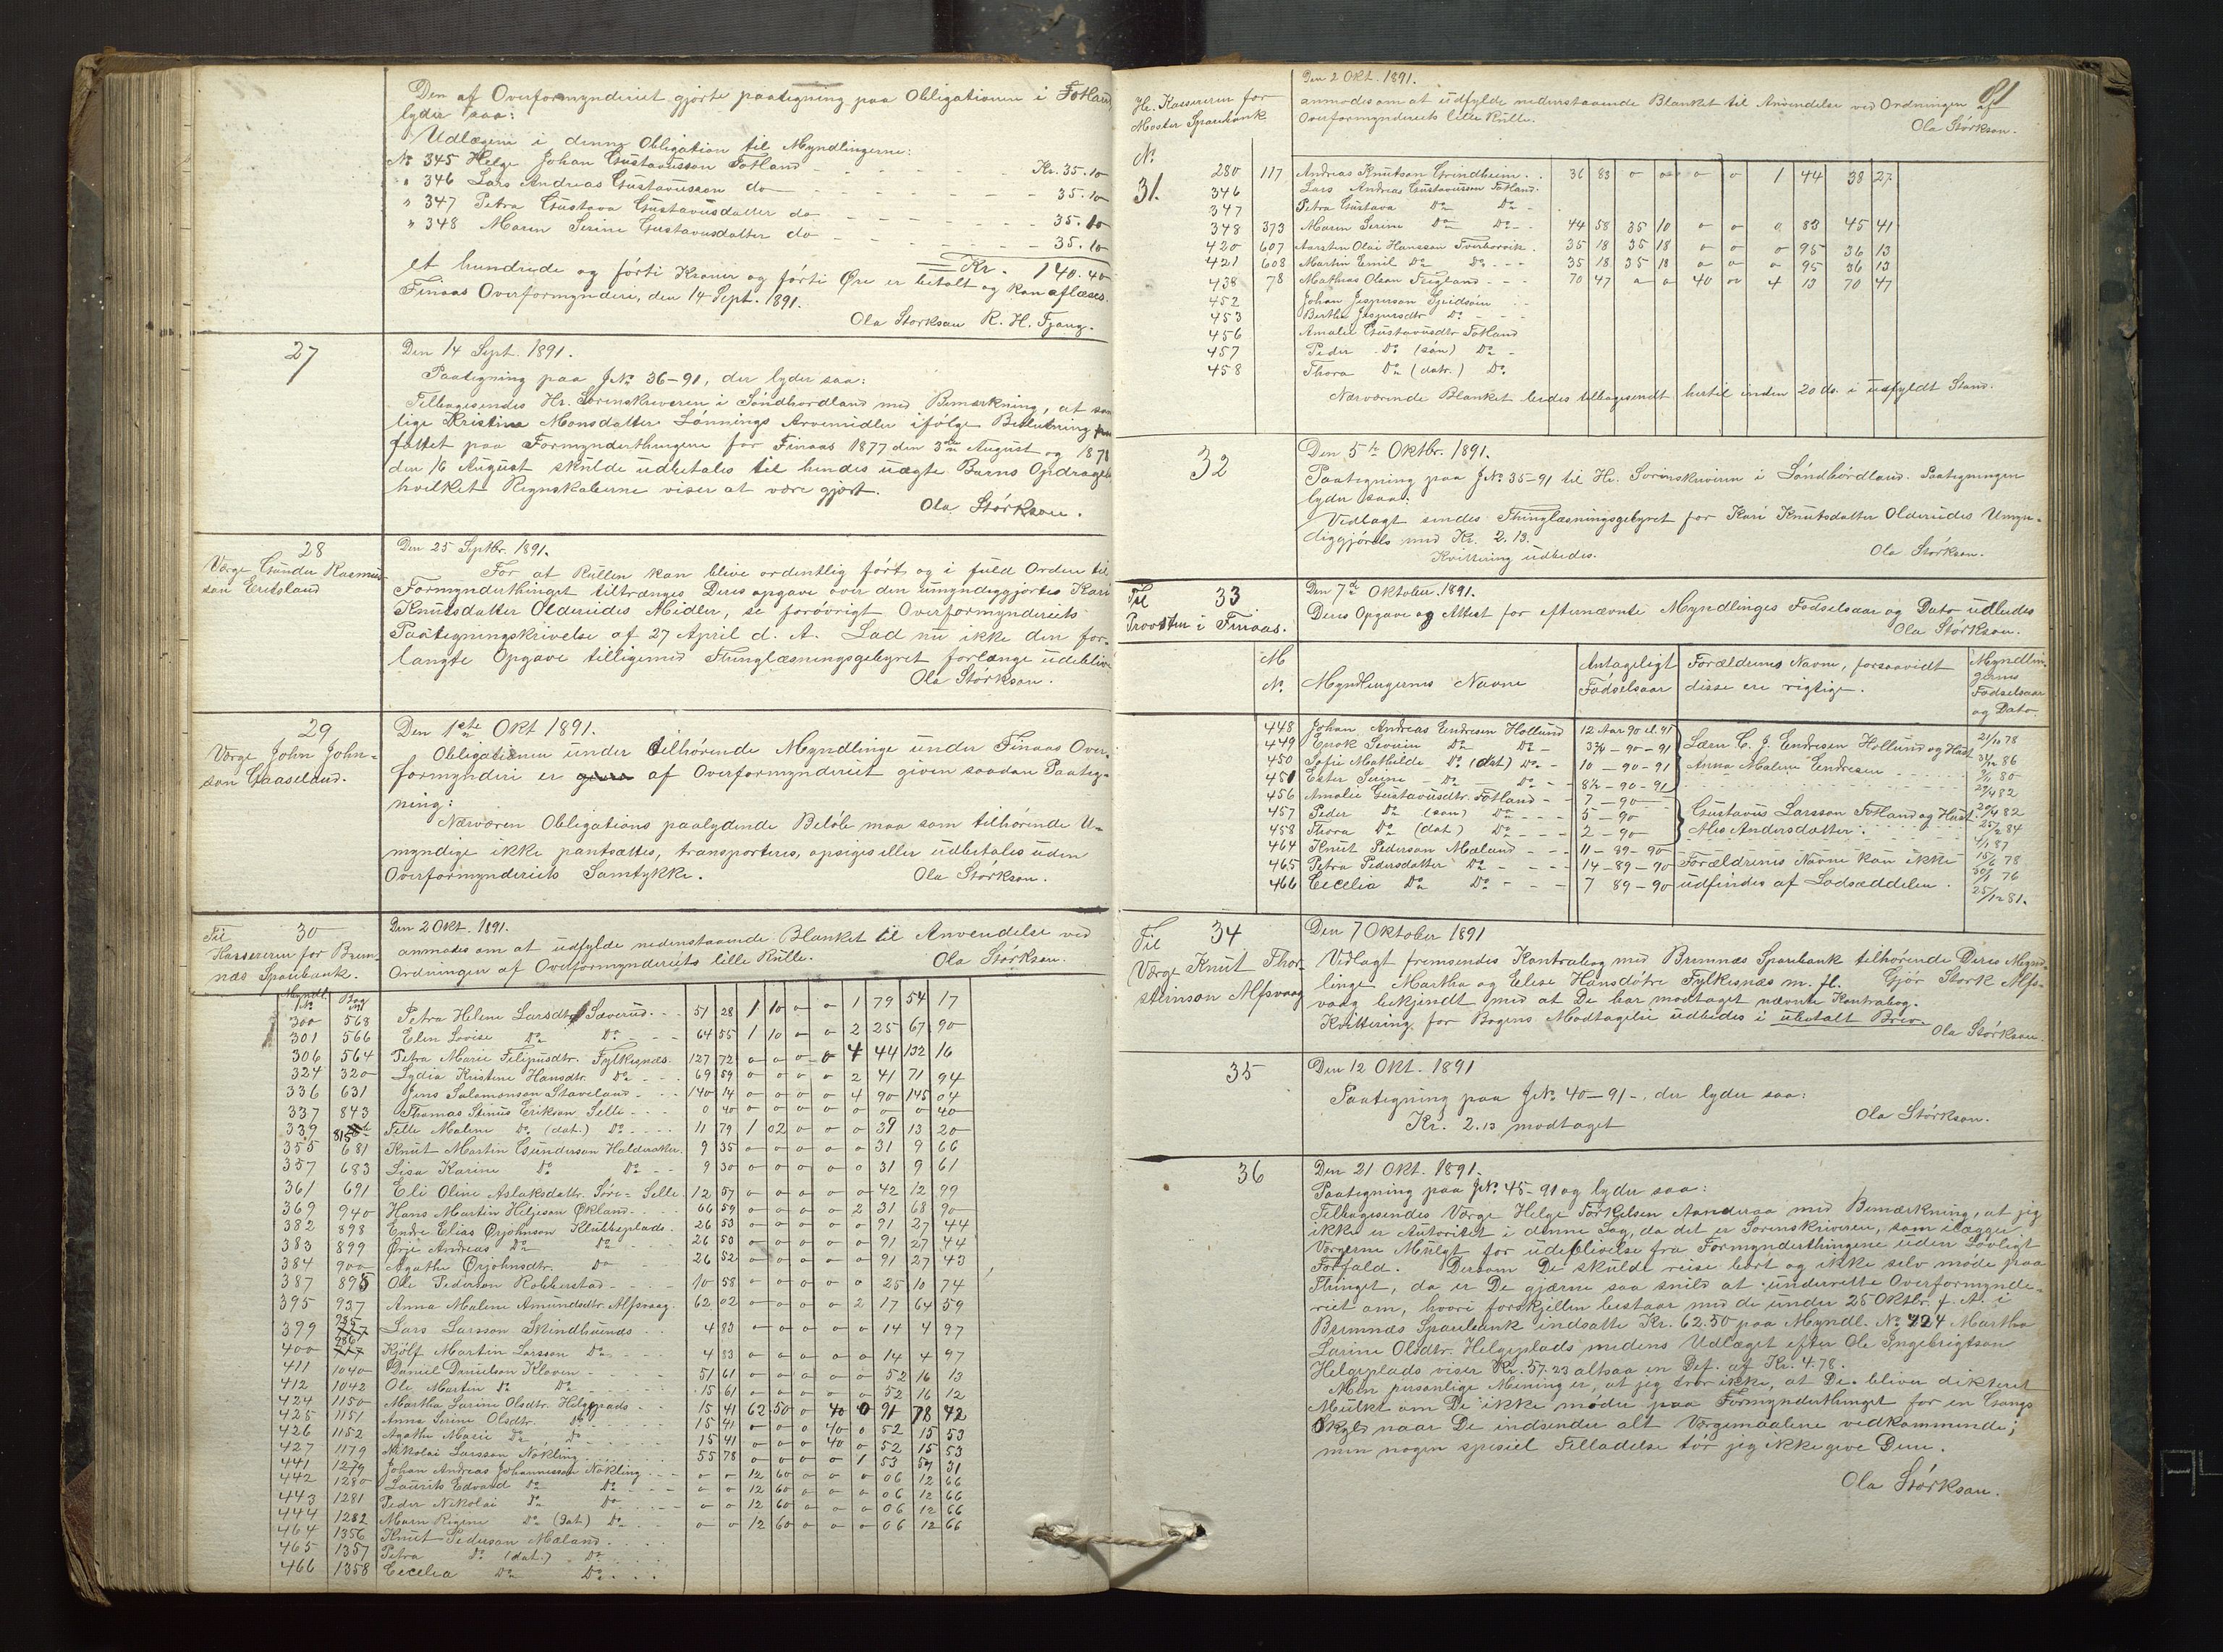 Den af Overformynderiet gjorte paategning paa Obligationen i Fotland
lyder saa:
Udlægene i denne Obligation til Myndlingerne:
No 345 Helge Johan Gustavusson Fotland - - - - - - Kr. 35.10
" 346 Lars Andreas Gustavusson do - - - - - - 35.10
" 347 Petra Gustava Gustavusdatter do - - - - - - 35.10
" 348 Maren Serine Gustavusdatter do - - - - - - 35.10
Kr. 140.40
et hundrede og førti Kroner og førti Øre er betalt og kan aflæses.
Finaas Overformynderi, den 14 Sept. 1891.
Ola Størkson R. H. Fjang.
27
Den 14 Sept. 1891.
Paategning paa J.No. 36-91, der lyder saa:
Tilbagesendes Hr. Sorenskriveren i Søndhordland med Bemærkning, at saa
lige Kristine Monsdatter Lønnings Arvemidler ifølge Beslutning
fattet paa Formynderthingene for Finaas 1877 den 3die August og 1878
den 16 August skulde udbetales til hendes uægte Barns Opdragelse
hvilket Regnskaberne viser at være gjort.
Ola Størkson.
28
Værge Gunder Rasmus-
son Eritsland
Den 25 Septbr. 1891.
For at Rullen kan blive ordentlig ført og i fuld Orden til
Formynderthinget tiltrænges Deres opgave over den umyndiggjortes Kari
Knutsdatter Oldereides Midler, se forøvrigt Overformynderiets
Paategningskrivelse af 27 April d. A. Lad nu ikke den for-
langte Opgave tilligemed Thinglæsningsgebyret forlænge udeblive
Ola Størkson.
29
Værge John John-
son Gaaseland.
Den 1ste Okt 1891.
Obligationen under tilhørende Myndlinge under Finaas Over-
formynderi er given af Overformynderiet given saadan Paateg-
ning:
Nærværen Obligations paalydende Beløb maa som tilhørende U-
myndige ikke pantsættes, transporteres, opsiges eller udbetales uden
Overformynderiets Samtykke.
Ola Størkson.
Til 30
Kassereren for Brem-
næs Sparebank.
Den 2 Okt. 1891.
anmodes om at udfylde nedenstaaende Blanket til Anvendelse ved
Ordningen af Overformynderiets lille Rulle.
Ola Størkson.
Myndl. No Bog No
300 568 Petra Helene Larsdtr. Sæverud - - 51 28 1 10 o o 1 79 54 17
301 566 Elen Lovise Do Do - - 64 55 1 10 o o 2 25 67 90
306 564 Petra Marie Filipusdtr. Fylkesnæs. 127 72 o o o o 4 44 132 16
324 320 Lydia Kristine Hansdtr. Do - - 69 59 o o o o 2 41 71 94
336 631 Jens Salomonson Staveland - - 140 14 o o o o 4 90 145 04
337 843 Thomas Stinus Erikson Selle - - 0 40 o o o o o o o 40
339 815 Telle Maline Do (dat.) Do - - 11 79 1 02 o o o 39 13 20
355 681 Knut Martin Gunderson Halderaker. 9 35 o o o o o 31 9 66
357 683 Lisa Karine Do Do - - 9 30 o o o o o 31 9 61
361 691 Eli Oline Aslaksdattr. Søre-Selle. 12 57 o o o o o 42 12 99
369 940 Hans Martin Hiljeson Økland - - 66 59 o o o o 2 31 68 90
382 898 Endre Elias Ørjohnson Klubbeplads. 26 53 o o o o o 91 27 44
383 899 Ørje Andreas Do Do - - 26 53 o o o o o 91 27 44
384 900 Agathe Ørjohnsdtr. Do - - 26 52 o o o o o 91 27 43
387 895 Ole Pederson Robberstad - - 10 58 o o o o o 25 10 74
395 937 Anna Maline Amundsdtr. Alfsvaag. 62 02 o o o o 2 17 64 59
399 935 Lars Larsson Skindhuends - - 4 83 o o o o o 14 4 97
400 936 Kjølf Martin Larsson Do - - 4 83 o o o o o 14 4 97
411 1040 Daniel Danielson Kloven - - 51 61 o o o o o 52 16 13
412 1042 Ole Martin Do Do - - 15 61 o o o o o 52 16 12
424 1150 Martha Larine Olsdtr. Helgeplads - - 15 41 62 50 o 40 0 91 78 42
425 1151 Anna Serine Olsdtr. Do - - 15 41 o o o 40 o 52 15 53
426 1152 Agathe Marie Do Do - - 15 41 o o o 40 o 52 15 53
427 1179 Nikolai Larsson Nøkling - - 55 78 o o o o 1 53 57 31
441 1279 Johan Andreas Johannesson Nøkling - - o o 12 60 o o o 06 12 66
442 1280 Laurits Edvard Do Do - - o o 12 60 o o o 06 12 66
443 1281 Peder Nikolai Do Do - - o o 12 60 o o o 06 12 66
444 1282 Maren Regine Do (Dat) Do - - o o 12 60 o o o 06 12 66
464 1356 Knut Pederson Mæland
465 1357 Petra Do (dat.) Do
466 1358 Cecelia Do Do
81
Hr. Kassereren for
Moster Sparebank
No
31.
Den 2 Okt. 1891.
anmodes om at udfylde nedenstaaende Blanket til Anvendelse ved Ordningen af
Overformynderiets lille Rulle.
Ola Størkson.
280 117 Andrias Knutson Grindheim. . 36 83 o o o o 1 44 38 27
346 Lars Andreas Gustavusson Fotland.
347 Petra Gustava Do Do -
348 373 Maren Serine Do Do - - 44 58 35 10 o o o 83 45 41
420 607 Aarsten Olai Hansson Tverborvik. 35 18 35 18 o o o 95 36 13
421 608 Martin Emil Do Do - - - 35 18 35 18 o o o 95 36 13
438 78 Mathias Olson Teigland - - - 70 47 o o 40 o 4 13 70 47
452 Johan Jesperson Speidsøen - -
453 Berthe Jespersdtr Do - - -
456 Amalie Gustavusdtr Fotland
457 Peder Do (søn) Do -
458 Thora Do (datr.) Do
Nærværende Blanket bedes tilbagesendt hertil inden 20 ds. i udfyldt Stand.
32
Den 5te Oktbr. 1891.
Paategning paa J.No. 35-91 til Hr. Sorenskriveren i Søndhordland. Paategningen
lyder saa:
Vedlagt sendes Thinglæsningsgebyret for Kari Knutsdatter Oldereides Umyn-
diggjørels med Kr. 2.13.
Kvittering udbedes.
Ola Størkson.
Til 33
Provsten i Finaas.
Den 7de Oktober. 1891.
Deres Opgave og Attest for efternævnte Myndlinges Fødselsaar og Dato udbedes
Ola Størkson.
M No. Myndlingernes Navne Antageligt Fødselsaar Forældrenes Navne, forsaavidt disse ere rigtige. Myndlin-gernes Fødselsaar og Dato.
448 Johan Andreas Endresen Hollund 12 Aar 90 el. 91 Lærer C. J. Endresen Hollund og Hust 21/12 78
449 Enok Severin Do Do - 3 3/4 - 90 - 91 Anna Maline Endresen 31/12 86
450 Sofie Mathilde Do (dat) Do - 10 - 90 - 91 9/11 80
451 Ester Serine Do Do - 8 1/2 - 90 - 91 29/4 82
456 Amalie Gustavusdtr. Fotland - - 7 - 90 Gustavus Larsson Fotland og Hust. 20/4 82
457 Peder Do (søn) Do - - - 5 - 90 Mes Andersdatter 25/2 84
458 Thora Do (dat) Do - - - 2 - 90 4/1 87
464 Knut Pederson Mæland - - - 11 - 89 - 90 Forældrenes Navne kan ikke 15/6 78
465 Petra Pedersdatter Do - - - 14 - 89 - 90 udfindes af Lodseddelen. 30/1 76
466 Cecelia Do Do - - - 7 89 - 90 25/12 81.
Til 34
Værge Knut Thor-
steinson Alfsvaag
Den 7 Oktober 1891
Vedlagt fremsendes Kontrabog med Bremnæs Sparebank tilhørende Deres Mynd-
linge Martha og Elise Hansdøtre Fylkesnæs m. fl. Gjør Stork Alfs-
vaag bekjendt med at De har modtaget nævnte Kontrabog.
Kvittering for Bogens Modtagelse udbedes i ubetalt Brev.
Ola Størkson.
35
Den 12 Okt. 1891
Paategning paa J.No. 40-91-, der lyder saa:
Kr. 2.13 modtaget
Ola Størkson.
36
Den 21 Okt. 1891.
Paategning paa J.No. 45-91 og lyder saa:
Tilbagesendes Værge Helge Torkelsen Aanderaa med Bemærkning, at jeg
ikke er Autoritet i denne Sag, da det er Sorenskriveren, som ilægger
Værgerne Mulgt for udeblivelse fra Formynderthingene uden Lovligt
Forfald. Dersom De skulde reise bort og ikke selv møde paa
Thinget, da er De gjærne saa snild at underrette Overformynde-
riet om, hvori forskjellen bestaar med de under 25 Oktbr. f. A. i
Bremnæs Sparebank indsatte Kr. 62.50 paa Myndl. No. 424 Martha
Larine Olsdtr. Helgeplads medens Udlæget efter Ole Ingebrigtson
Helgeplads viser Kr. 57.23 altsaa en Def. af Kr. 4.78.
Min personlige Mening er, at jeg tror ikke, at De bliver dikteret
Mulkt om De ikke møder paa Formynderthinget for en Gangs
Skyld naar De indsender alt Værgemaalene vedkommende;
men nogen spesiel Tilladelse tør jeg ikke give Dem.
Ola Størkson.